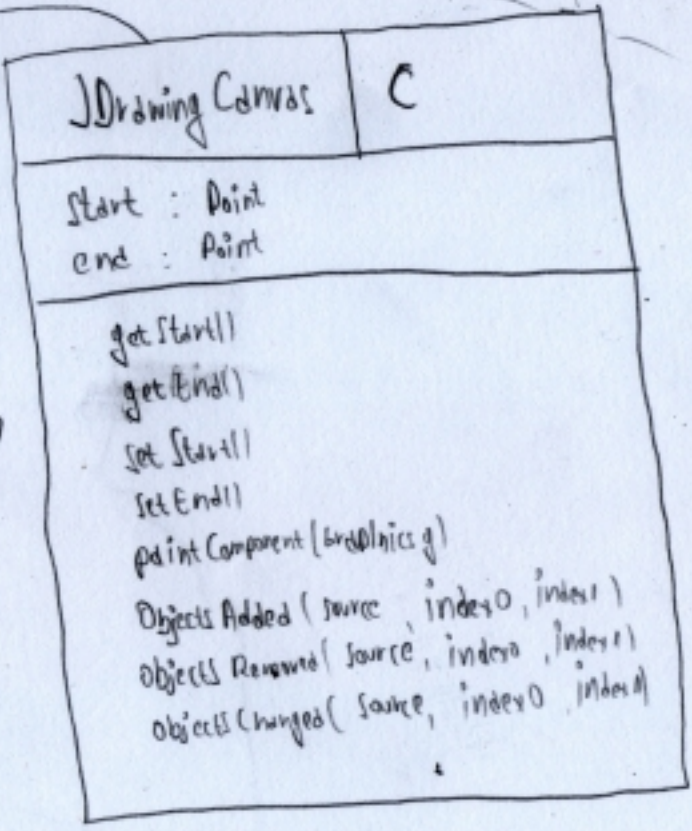 JDrawing Canvas C
start : Point
end : Point
getStart()
getEnd()
set Start()
setEnd()
paint Component (Graphics g)
Objects Added ( source , index0 , index1 )
objects Removed ( source , index0 , index1 )
objects Changed ( source, index0 index1)